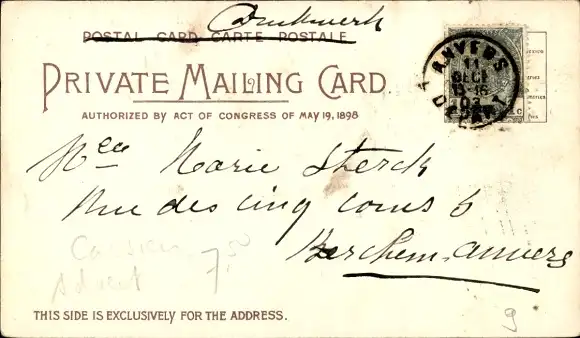 Drukwerk
POSTAL CARD CARTE POSTALE
PRIVATE MAILING CARD.
AUTHORIZED BY ACT OF CONGRESS OF MAY 19, 1898
ANVERS
11
DECE
13-16
03
DEPART
Marie Sterck
Rue des cinq cours 6
Berchem-Anvers
7,50
9
THIS SIDE IS EXCLUSIVELY FOR THE ADDRESS.